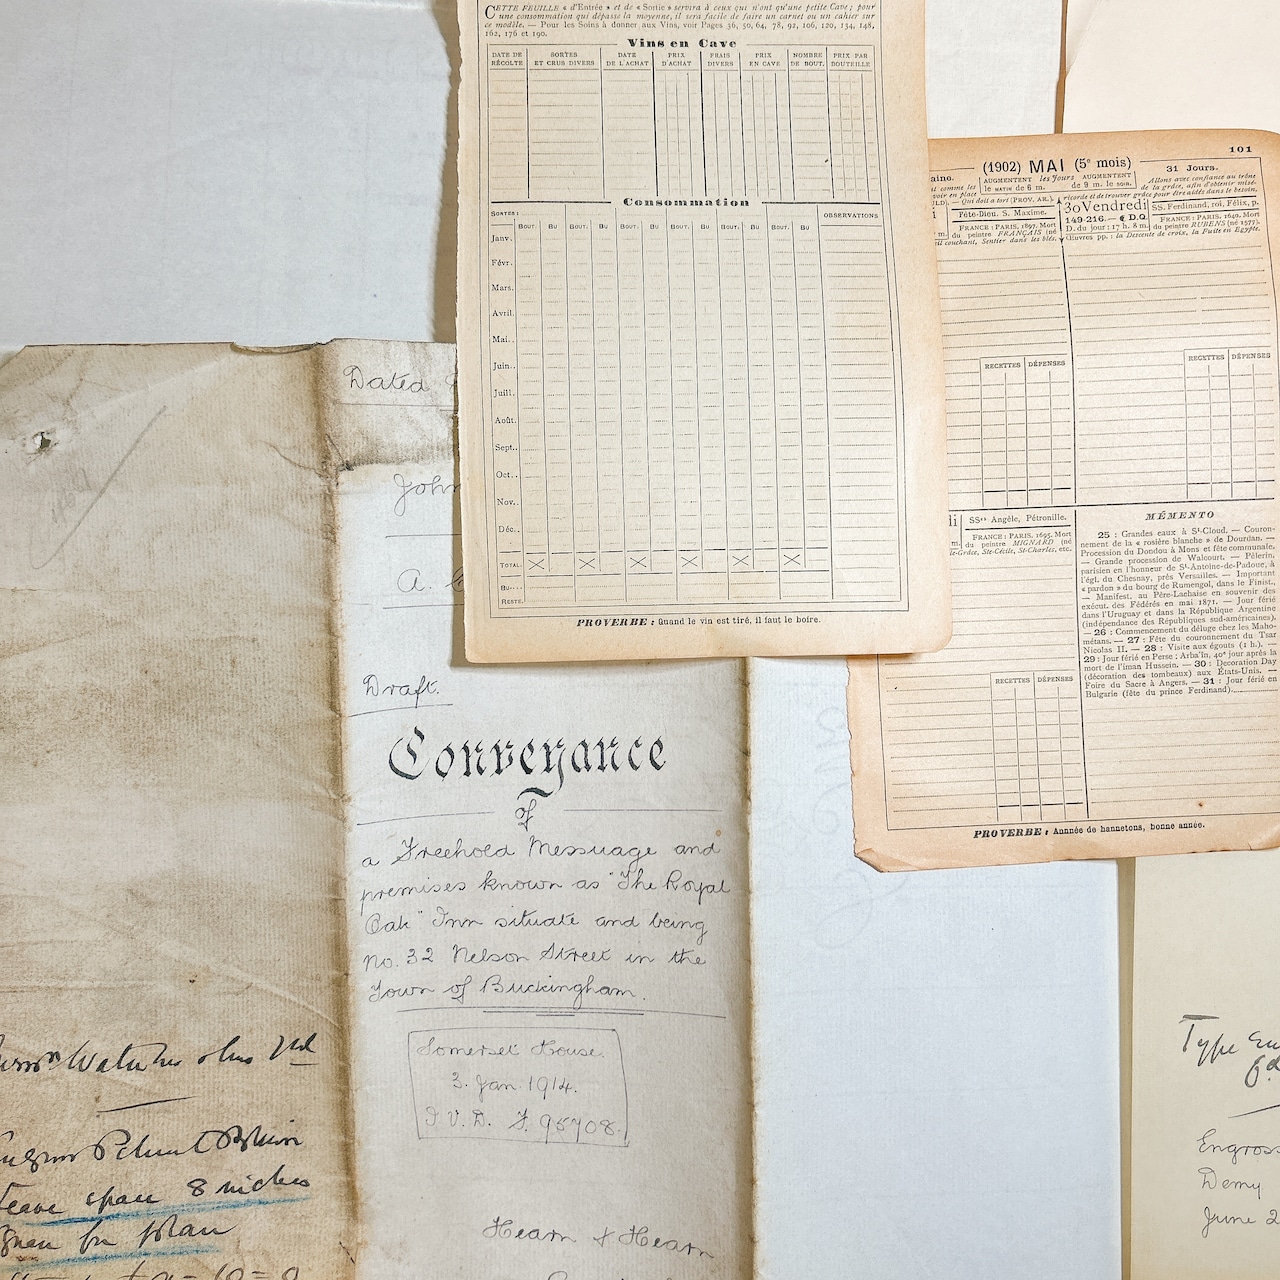 CETTE FEUILLE « d'Entrée » et de « Sortie » servira à ceux qui n'ont qu'une petite Cave ; pour
une consommation qui dépasse la moyenne, il sera facile de faire un carnet ou un cahier sur
ce modèle. — Pour les Soins à donner aux Vins, voir Pages 36, 50, 64, 78, 92, 106, 120, 134, 148,
162, 176 et 190.
Vins en Cave
DATE DE RÉCOLTE
SORTES ET CRUS DIVERS
DATE DE L'ACHAT
PRIX D'ACHAT
FRAIS DIVERS
PRIX EN CAVE
NOMBRE DE BOUT.
PRIX PAR BOUTEILLE
Consommation
SORTES :
OBSERVATIONS
BOUT. BU BOUT. BU BOUT. BU BOUT. BU BOUT. BU BOUT. BU
Janv.
Févr.
Mars.
Avril.
Mai..
Juin..
Juill.
Août.
Sept..
Oct..
Nov.
Déc..
TOTAL.
BU....
RESTE.
PROVERBE : Quand le vin est tiré, il faut le boire.
101
aine.
(1902) MAI (5e mois)
31 Jours.
AUGMENTENT les Jours AUGMENTENT
le MATIN de 6 m. de 9 m. le SOIR.
Allons avec confiance au trône
de la grâce, afin d'obtenir misé-
ricorde et de trouver grâce pour être aidés dans le besoin.
— Qui doit a tort (PROV. AR.).
Fête-Dieu. S. Maxime.
FRANCE : PARIS, 1897. Mort
du peintre FRANÇAIS (né
il couchant, Sentier dans les blés.
30 Vendredi
149-216. — D.Q.
D. du jour : 17 h. 8 m.
SS. Ferdinand, roi, Félix, p.
FRANCE : PARIS, 1640. Mort
du peintre RUBENS (né 1577).
Œuvres pp. : la Descente de croix, la Fuite en Egypte.
RECETTES DÉPENSES
RECETTES DÉPENSES
di
SSes Angèle, Pétronille.
FRANCE : PARIS, 1695. Mort
du peintre MIGNARD (né
le-Grâce, Ste-Cécile, St-Charles, etc.
RECETTES DÉPENSES
MÉMENTO
25 : Grandes eaux à St-Cloud. — Couron-
nement de la « rosière blanche » de Dourdan. —
Procession du Dondou à Mons et fête communale.
— Grande procession de Walcourt. — Pèlerin.
parisien en l'honneur de St-Antoine-de-Padoue, à
l'égl. du Chesnay, près Versailles. — Important
« pardon » du bourg de Rumengol, dans le Finist.,
— Manifest. au Père-Lachaise en souvenir des
exécut. des Fédérés en mai 1871. — Jour férié
dans l'Uruguay et dans la République Argentine
(indépendance des Républiques sud-américaines).
— 26 : Commencement du déluge chez les Maho-
métans. — 27 : Fête du couronnement du Tsar
Nicolas II. — 28 : Visite aux égouts (1 h.). —
29 : Jour férié en Perse : Arba'în, 40e jour après la
mort de l'iman Hussein. — 30 : Decoration Day
(décoration des tombeaux) aux États-Unis. —
Foire du Sacre à Angers. — 31 : Jour férié en
Bulgarie (fête du prince Ferdinand)
PROVERBE : Annnée de hannetons, bonne année.
Dated
John
a.
Draft.
Conveyance
of
a Freehold Messuage and
premises known as "The Royal
Oak" Inn situate and being
No. 32 Nelson Street in the
Town of Buckingham.
Somerset House.
3. Jan. 1914.
I V. D. F. 95708.
Hearn & Hearn
leave space 8 inches
for plan
Type
6d
Engross
Demy
June 2